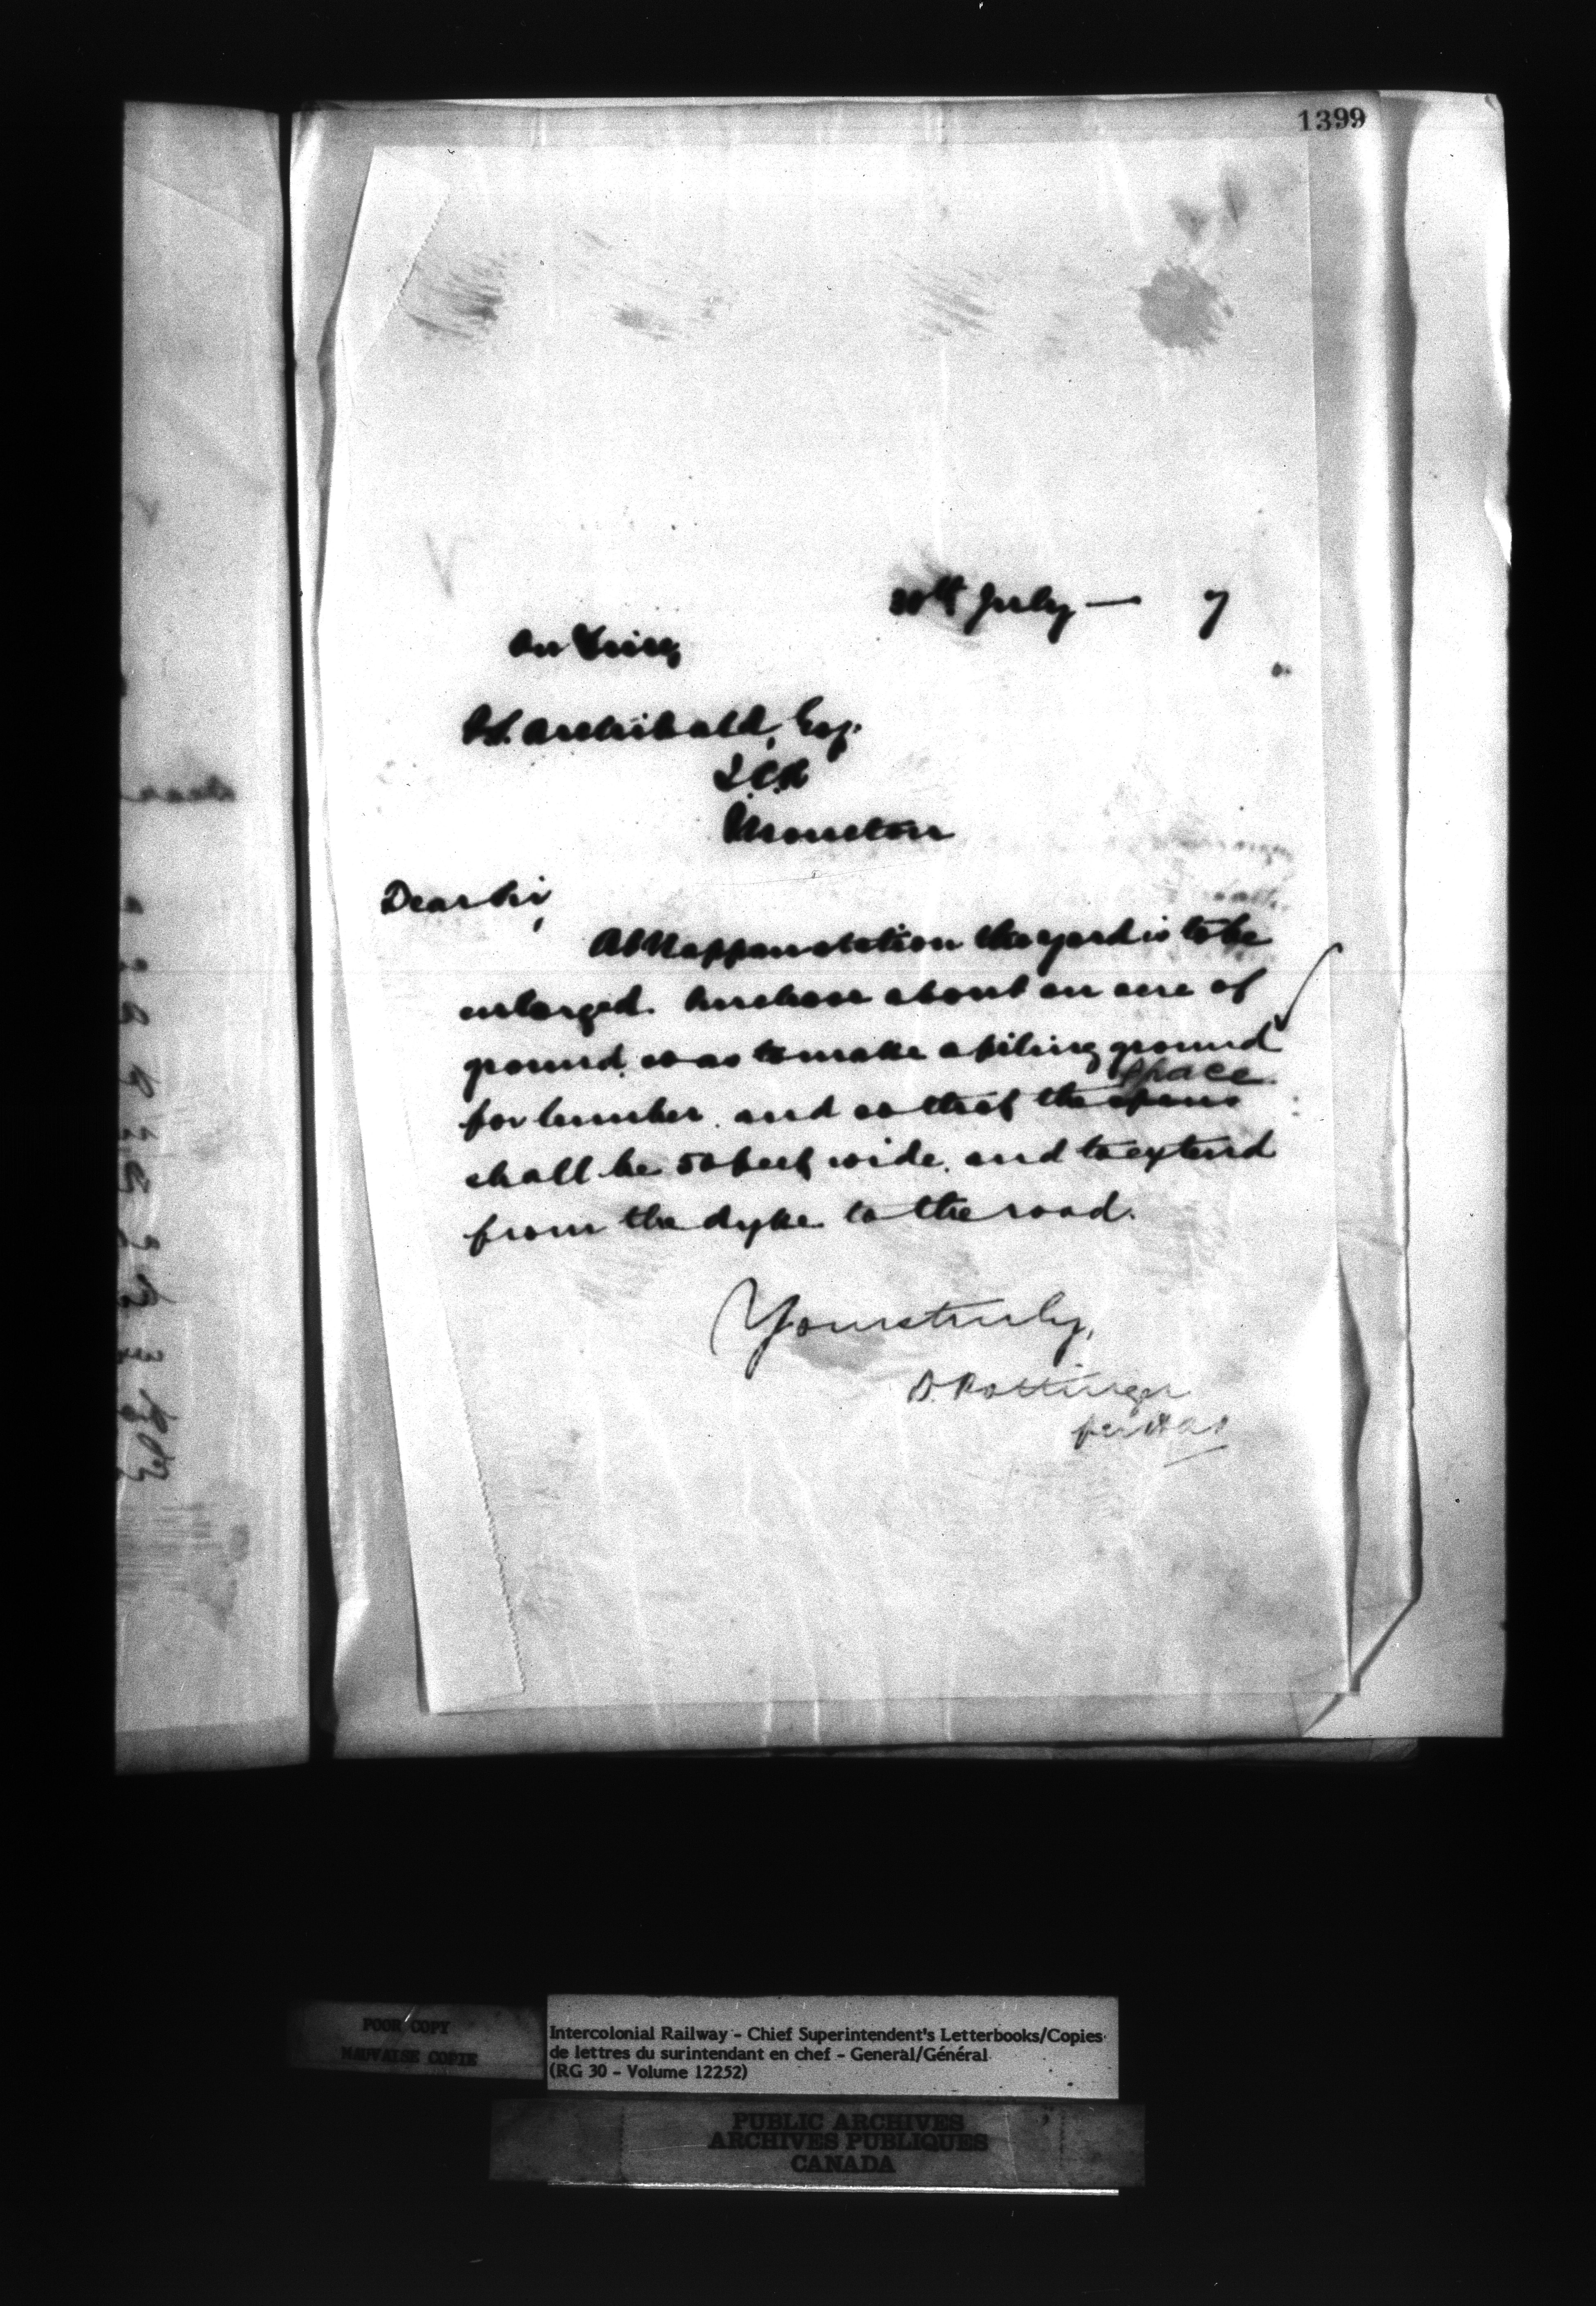 1399
July — 7
On Train,
P.S. Archibald, Esq.
I.C.R
Moncton
Dear Sir,
At Nappan station the yard is to be
enlarged. Purchase about an acre of
ground, so as to make a piling ground
space.
for lumber, and so that the
shall be 50 feet wide, and to extend
from the dyke to the road.
Yours truly,
D. Pottinger
per
POOR COPY
MAUVAISE COPIE
Intercolonial Railway - Chief Superintendent's Letterbooks/Copies
de lettres du surintendant en chef - General/Général
(RG 30 - Volume 12252)
PUBLIC ARCHIVES
ARCHIVES PUBLIQUES
CANADA